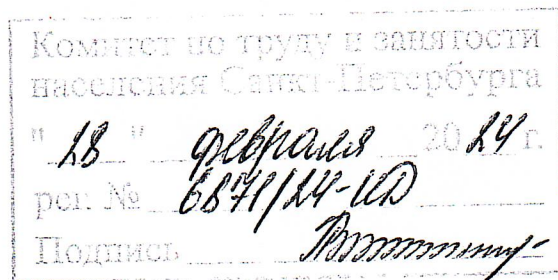 Комитет по труду и занятости
населения Санкт-Петербурга
"28" февраля 2024 г.
рег. № 6871/24-КД
Подпись